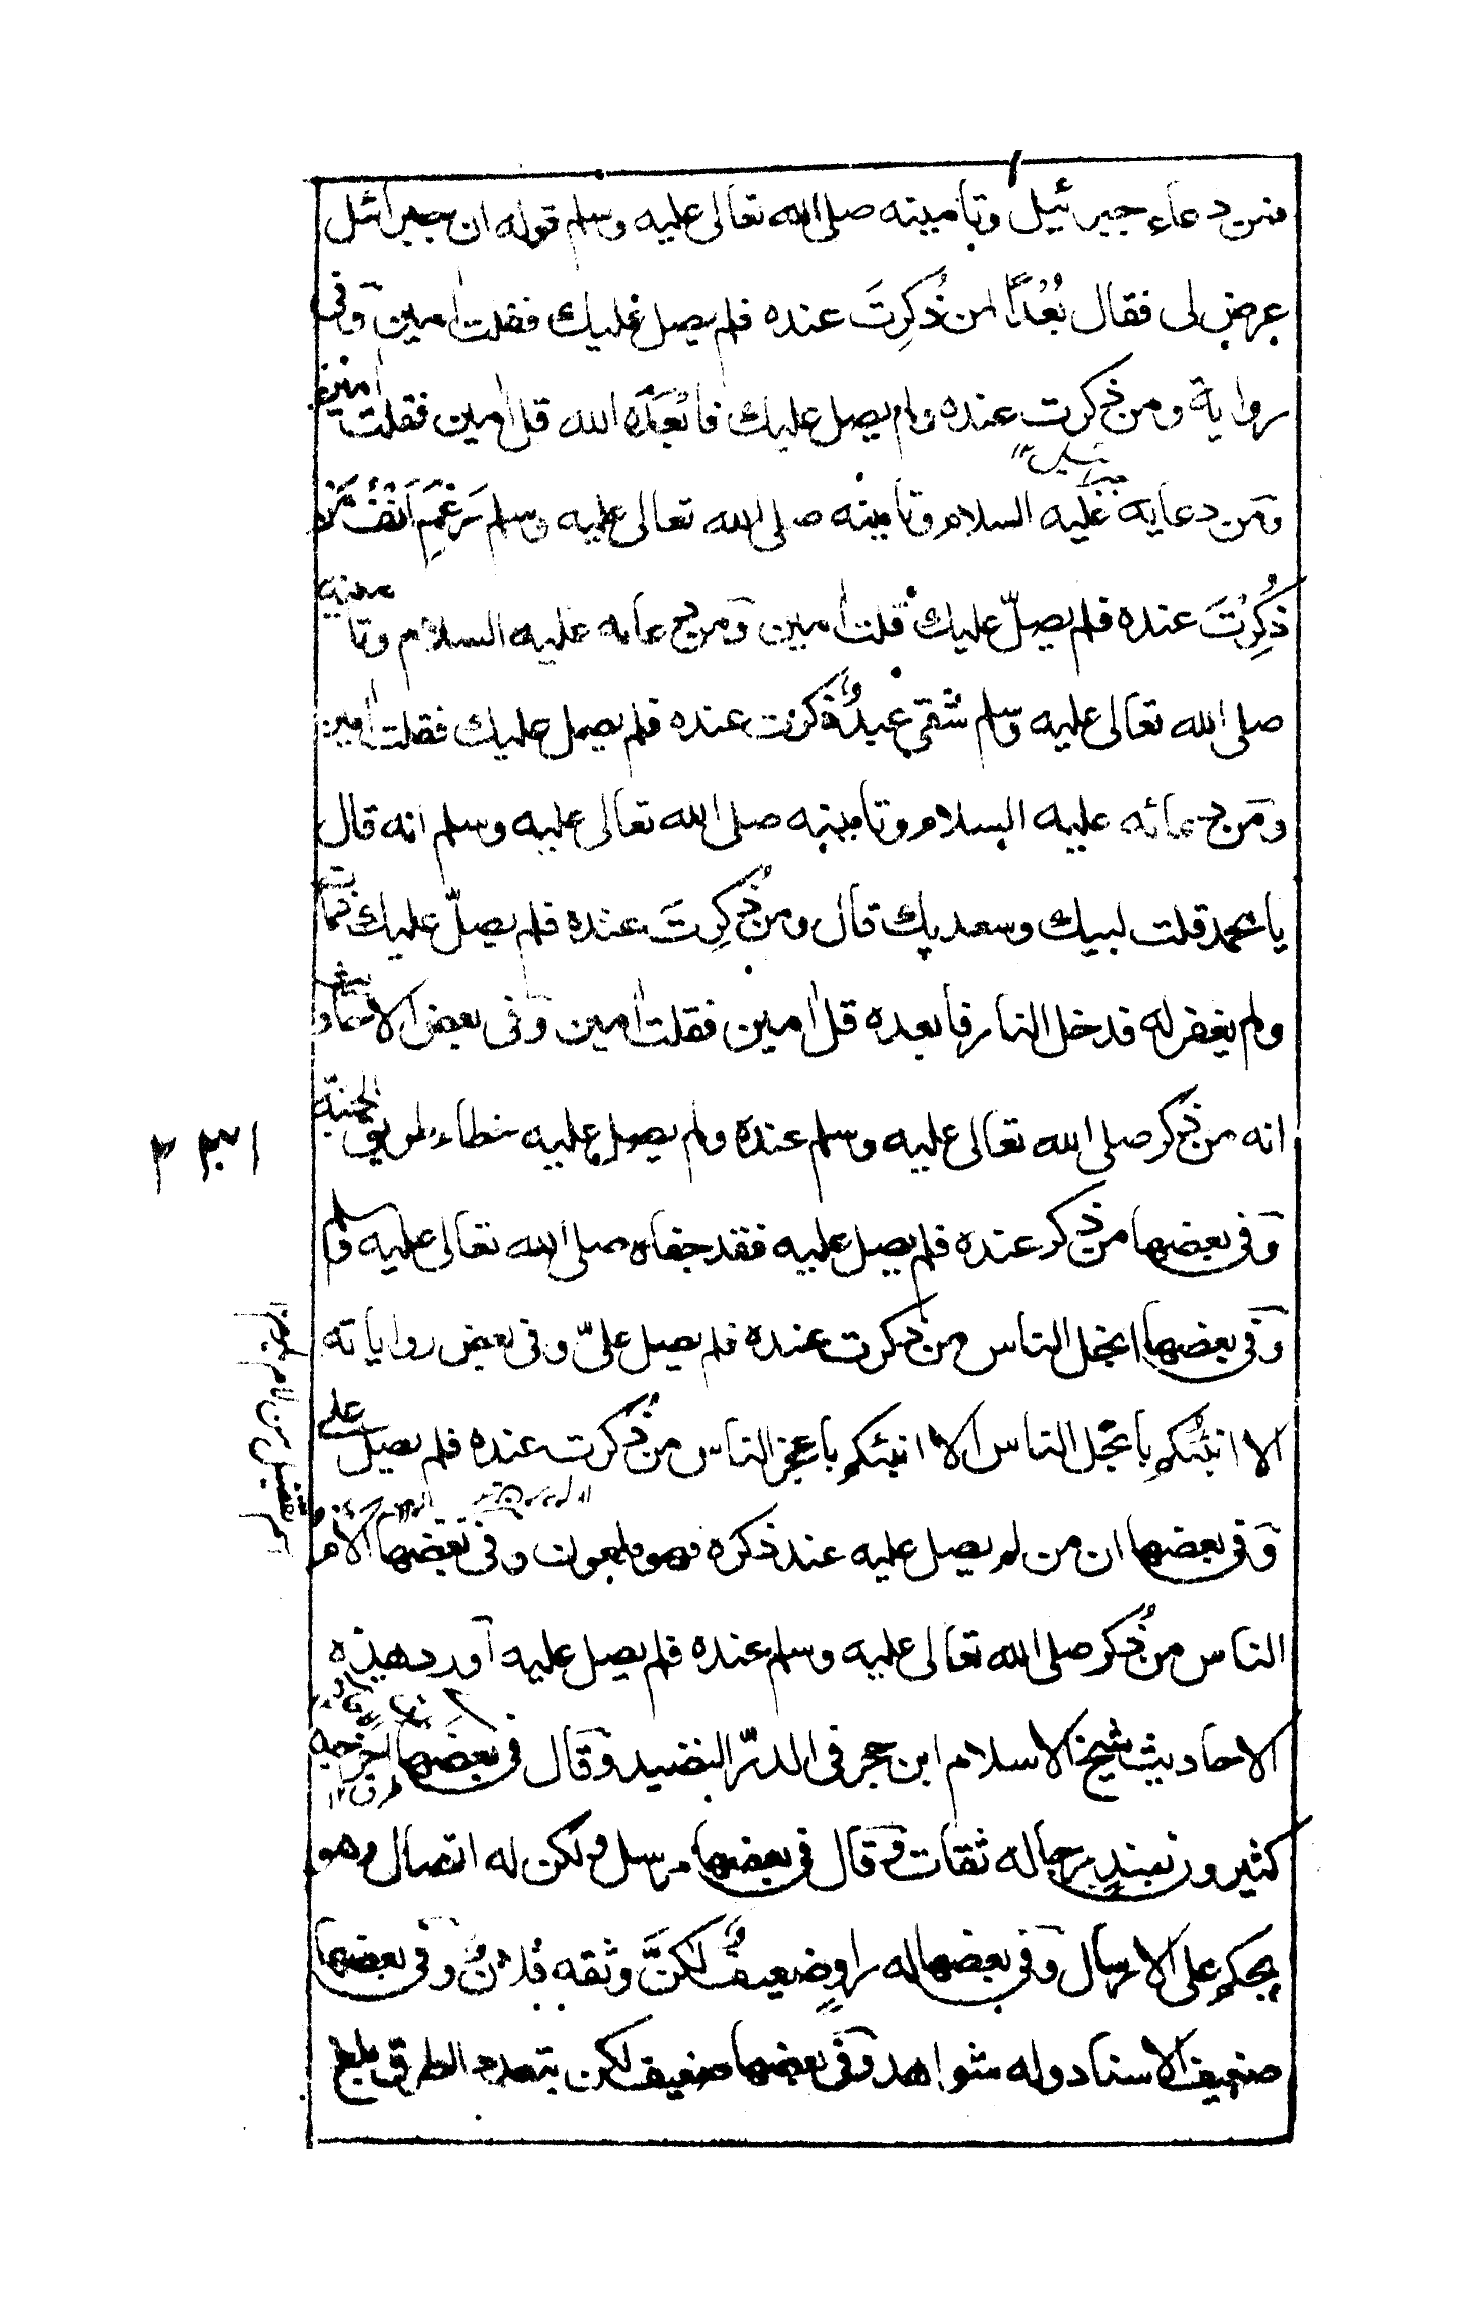 فمن دعاء جبرئيل وتامينه صلى الله تعالى عليه وسلم قوله ان جبرائيل
عرض لى فقال بُعْدًا لمن ذُكِرتَ عنده فلم يصل عليك فقلت امين وفى
رواية ومن ذكرت عنده ولم يصل عليك فابْعَدَه الله قل امين فقلت امين
ومن دعايه عليه السلام وتامينه صلى الله تعالى عليه وسلم رَغِمَ اَنْفُ مَنْ
ذُكِرْتَ عنده فلم يصلّ عليك قلت امين ومن دعائه عليه السلام وتامينه
صلى الله تعالى عليه وسلم شقى عبدٌ ذكرت عنده فلم يصل عليك فقلت امين
ومن دعائه عليه السلام وتامينه صلى الله تعالى عليه وسلم انه قال
يا محمد قلت لبيك وسعديك قال ومن ذُكِرتَ عنده فلم يصلّ عليك فمات
ولم يغفر له فدخل النار فابعده قل امين فقلت امين وفى بعض الاحاديث
انه من ذكر صلى الله تعالى عليه وسلم عنده ولم يصل عليه خطاء طريق الجنة
وفى بعضها من ذكر عنده فلم يصل عليه فقد جفاه صلى الله تعالى عليه وسلم
وفى بعضها ابخل الناس من ذكرت عنده فلم يصل علىّ وفى بعض رواياته
الا انبئكم بابخل الناس الا انبئكم باعجز الناس من ذُكرت عنده فلم يصل على
وفى بعضها ان من لم يصل عليه عند ذكره فهو ملعون وفى بعضها الأم
الناس من ذُكر صلى الله تعالى عليه وسلم عنده فلم يصل عليه آورد هذه
الاحاديث شيخ الاسلام ابن حجر فى الدرّ النضيد وقال فى بعضها اخرجه
كثيرون بسند رجاله ثقات وقال فى بعضها مرسل ولكن له اتصال وهو
يحكم على الارسال وفى بعضها له راوٍ ضعيفٌ لكنَّ وثقه فلانٌ وفى بعضها
ضعيف الاسناد وله شواهد وفى بعضها ضعيف لكن بتعدد الطرق يبلغ